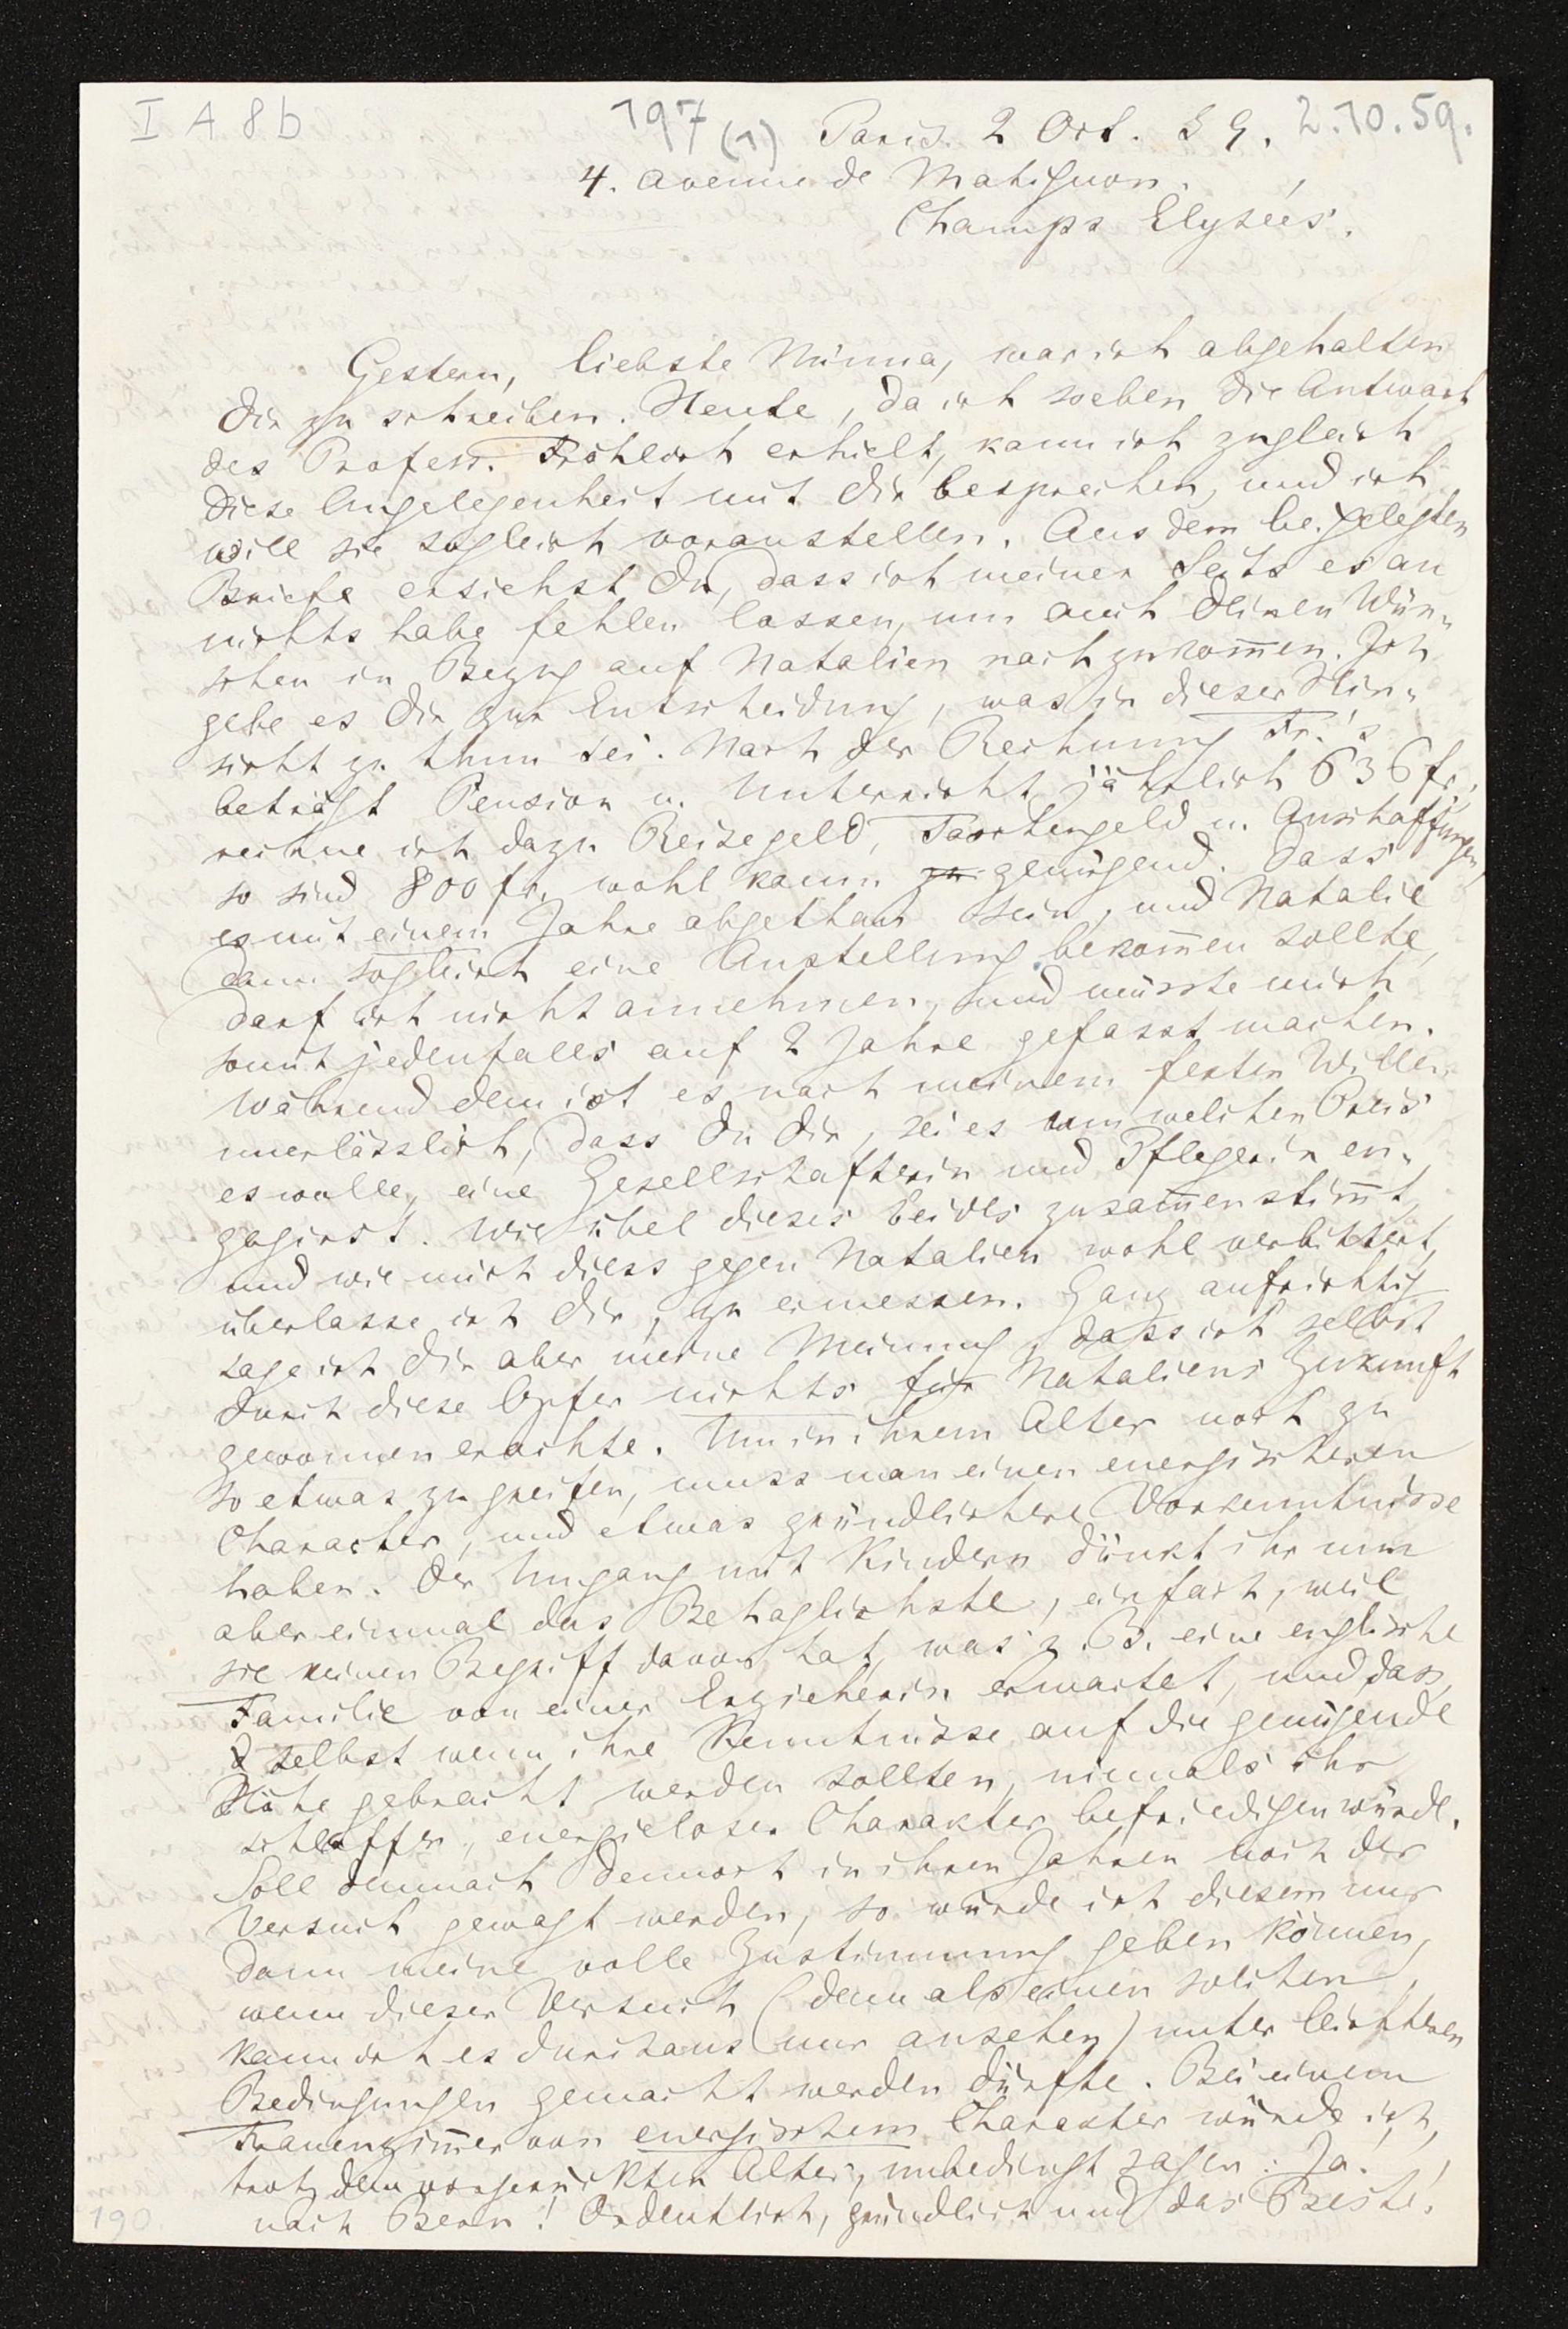 I A 8b
197 (1) Paris. 2 Oct. 59. 2.10.59.
4. avenue de Matignon.
Champs Elysées.
Gestern, liebste Minna, war ich abgehalten
Dir zu schreiben. Heute, da ich soeben die Antwort
des Profess. Fröhlich erhielt, kann ich zugleich
diese Angelegenheit mit Dir besprechen, und ich
will sie sogleich voranstellen. Aus dem beigelegten
Briefe ersiehst Du, dass ich meiner Seits es an
nichts habe fehlen lassen, um auch Deinen Wün-
schen in Bezug auf Natalien nachzukom̄en. Ich
gebe es Dir zur Entscheidung, was in dieser Hin-
sicht zu thun sei. Nach der Rechnung Fr.'s
beträgt Pension u. Unterricht jährlich 636 fr.;
rechne ich dazu Reisegeld, Taschengeld u. Anschaffungen,
so sind 800 fr. wohl kaum zu genügend. Dass
es mit einem Jahre abgethan sein, und Natalie
dann sogleich eine Anstellung bekom̄en sollte,
darf ich nicht annehmen, und müsste mich
somit jedenfalls auf 2 Jahre gefasst machen.
Während dem ist es nach meinem festen Willen
unerlässlich, dass Du Dir, sei es um welchen Preis
es wolle, eine Gesellschafterin und Pflegerin en-
gagirst. Wie übel dieses beides zusam̄enstim̄t,
und wie mich diess gegen Natalien wohl verbittert,
überlasse ich Dir, zu ermessen. Ganz aufrichtig
sage ich Dir aber meine Meinung, dass ich selbst
durch diese Opfer nichts für Nataliens Zukunft
gewonnen erachte. Um in ihrem Alter noch zu
so etwas zu greifen, muss man einen energischeren
Character, und etwas gründlichere Vorkenntnisse
haben. Der Umgang mit Kindern dünkt ihr nun
aber einmal das Behaglichste, einfach, weil
sie keinen Begriff davon hat, was z. B. eine englische
Familie von einer Erzieherin erwartet, und dass,
selbst wenn ihre Kenntnisse auf die genügende
Höhe gebracht werden sollten, niemals ihr
schlaffer, energieloser Charakter befriedigen würde.
Soll demnach dennoch in ihren Jahren noch der
Versuch gewagt werden, so würde ich diesem nur
dann meine volle Zustimmung geben können,
wenn dieser Versuch (denn als einen solchen
kann ich es durchaus nur ansehen) unter leichteren
Bedingungen gemacht werden dürfte. Bei einem
Frauenzim̄er von energischem Charakter würde ich,
trotz dem vorgerückten Alter, unbedingt sagen: Ja!
nach Bern! Ordentlich, gründlich und das Beste!
190